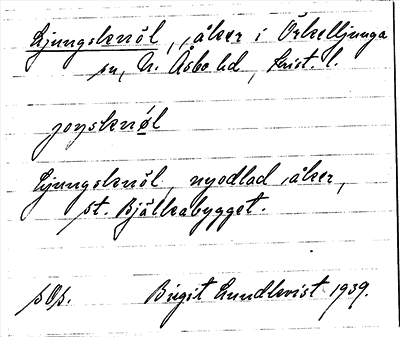 Ljungsknöl, åker i Örkelljunga
sn, N. Åsbo hd, Krist. l.
joŋsknøl
Ljungsknöl, nyodlad åker,
st. Bjälkabygget.
Birgit Lundkvist 1939.